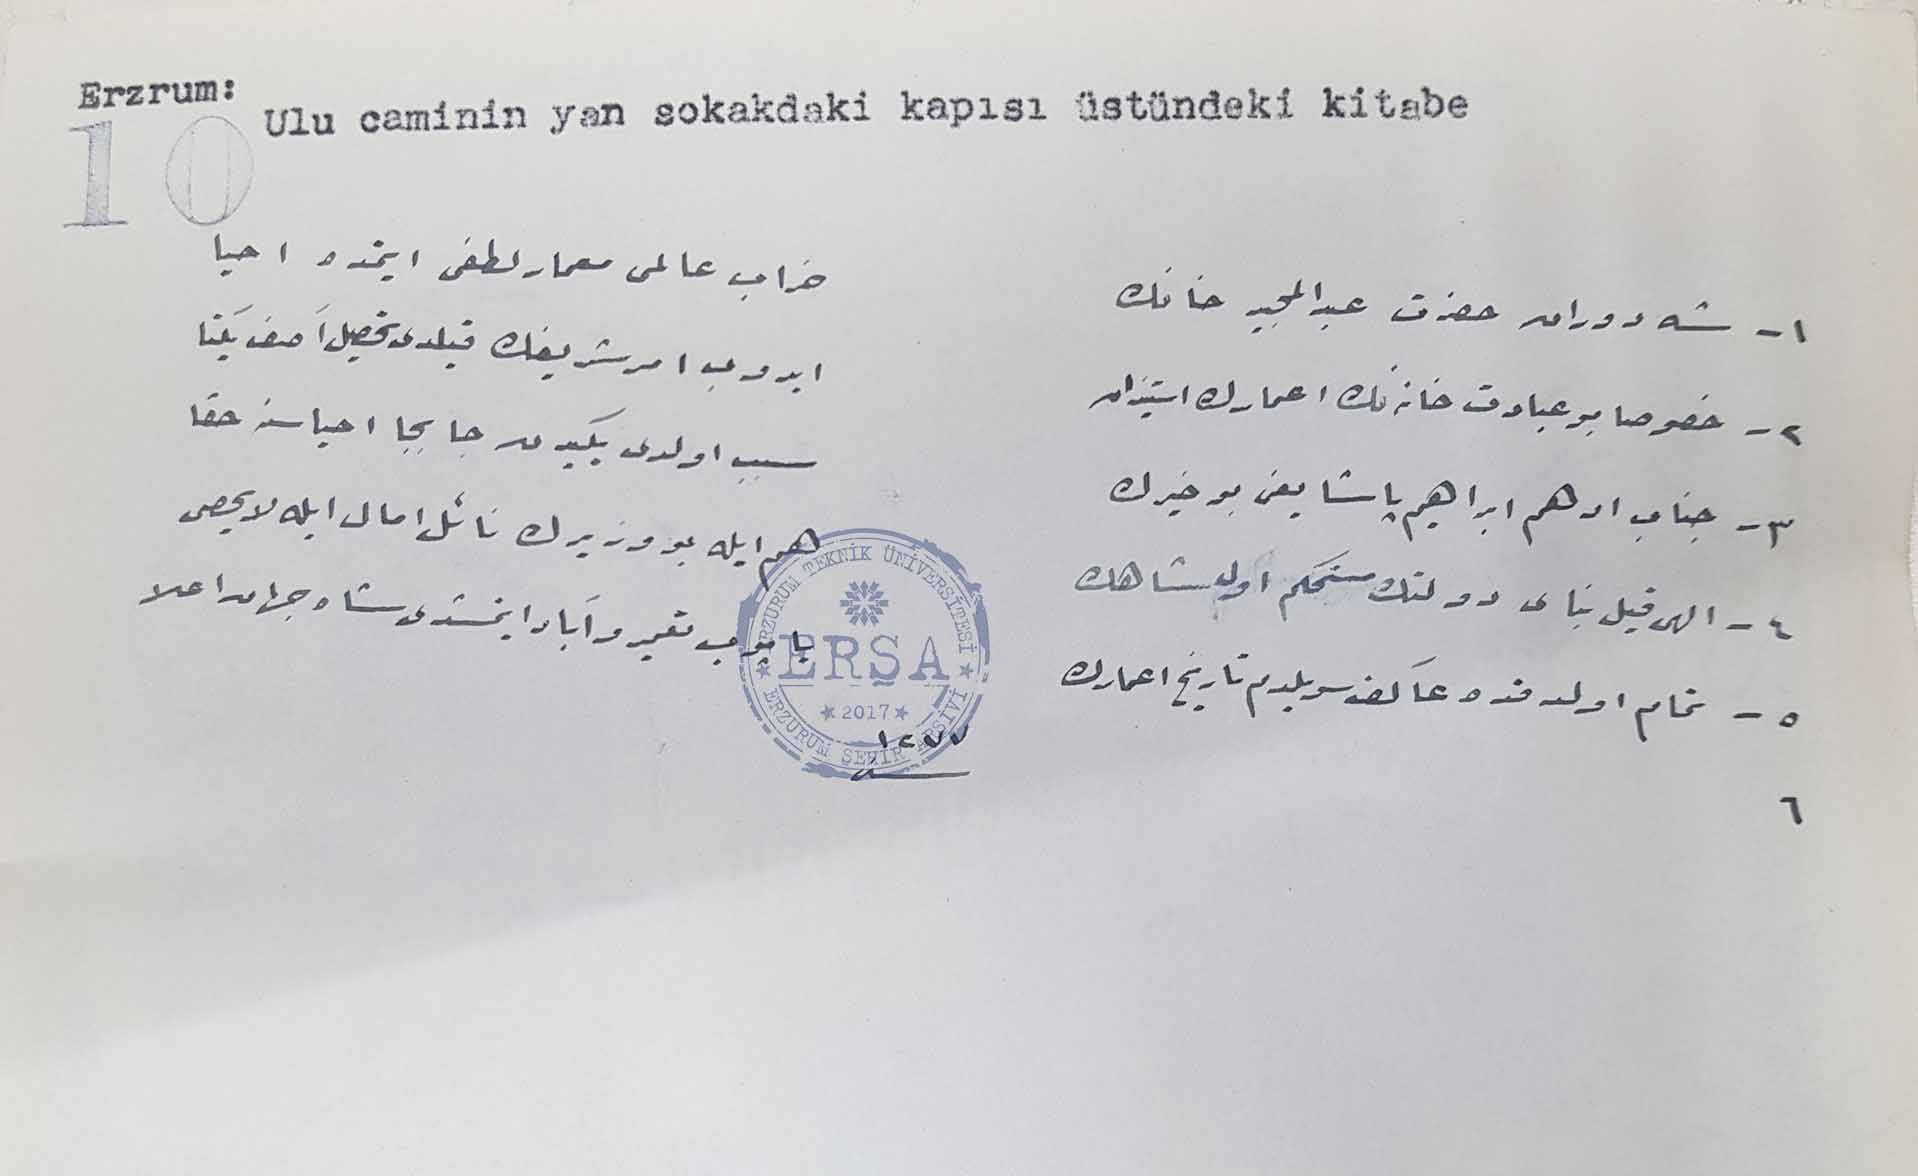 Erzrum:
10
Ulu caminin yan sokakdaki kapısı üstündeki kitabe
١ - شه دوران حضرت عبدالمجيد خانك
خراب عالمى معمار لطفى ايتمده احيا
٢ - خصوصا بو عبادت خانه نك اعمارك استيذان
ايدوب امر شريفك قيلدى تحصيل آصف يكتا
٣ - جناب ادهم ابراهيم پاشا يعنى بو خيرك
سبب اولدى يكيدن جا بجا احياسنه حقا
٤ - الهى قيل بناى دولتك مستحكم اول شاهك
هم ايله بو وزيرك نائل امال ايله لا يحصى
٥ - تمام اولدقده عاكف سويلدم تاريخ اعمارك
ياپوب تعمير و آباد ايتمشدى شاه جهان اعلا
١٢٧٧
٦
ERZURUM TEKNİK ÜNİVERSİTESİ
ERŞA
2017
ERZURUM ŞEHİR ARŞİVİ